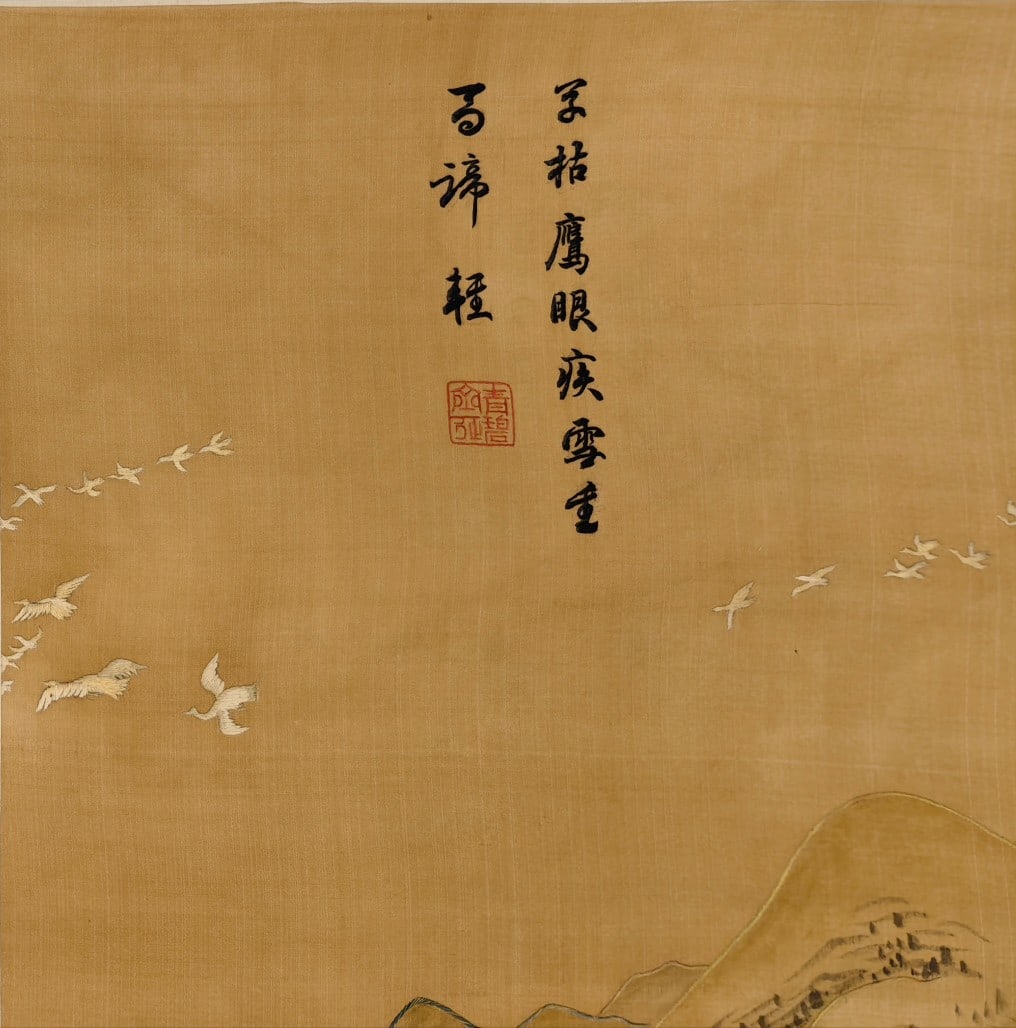 草枯鷹眼疾雪盡
馬蹄輕
青碧